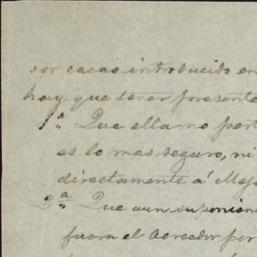 por cacao introducido en
hay que tener presente
1.ª Que ella no pert
es lo mas seguro, ni
directamente á Mej
2.ª Que aun suponien
fuera el acreedor por